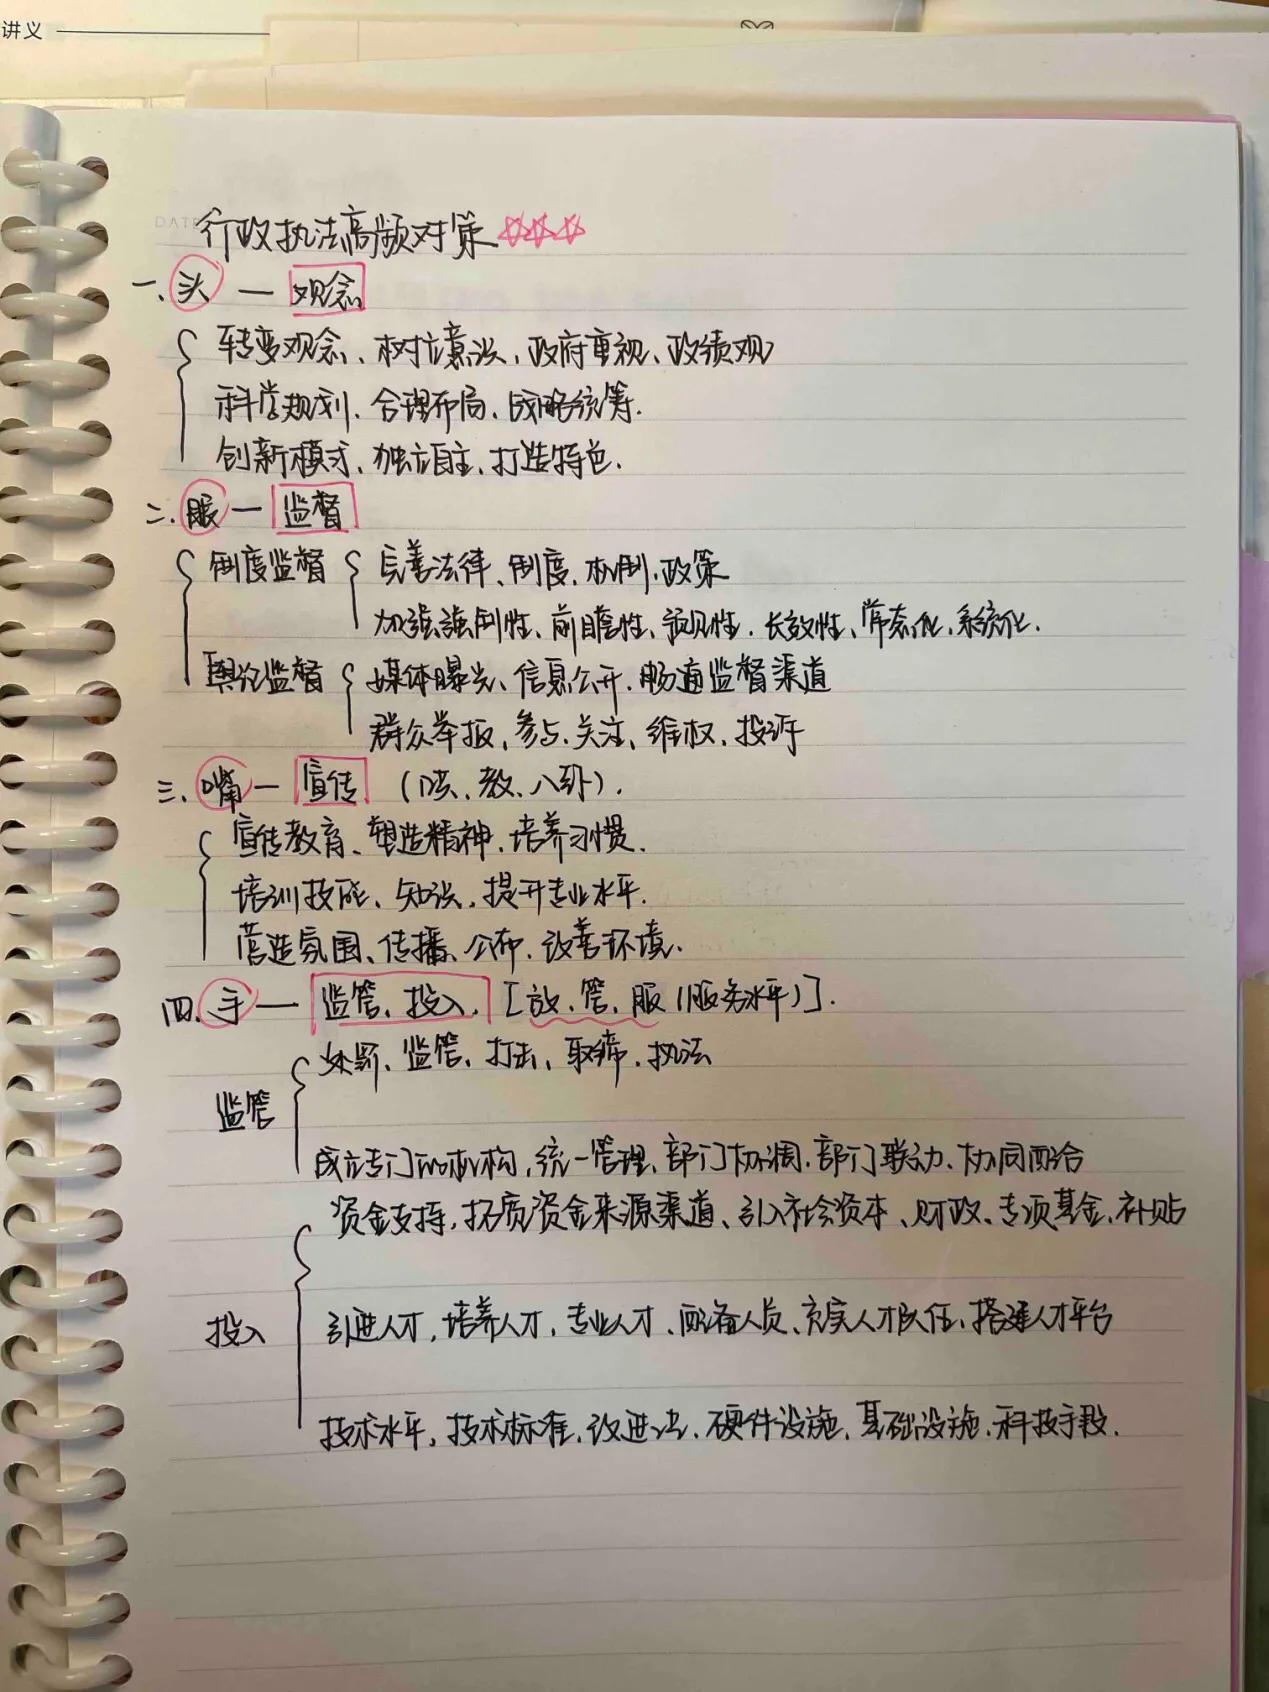 讲义
DATE
行政执法高频对策 ☆☆☆
一、头 — 观念
转变观念、树立意识、政府重视、政绩观
科学规划、合理布局、战略统筹.
创新模式、独立自主、打造特色.
二、眼 — 监督
制度监督 完善法律、制度、机制、政策
加强强制性、前瞻性、预见性、长效性、常态化、系统化.
舆论监督 媒体曝光、信息公开、畅通监督渠道
群众举报、参与、关注、维权、投诉
三、嘴 — 宣传 (吃、教、八卦).
宣传教育、塑造精神、培养习惯.
培训技能、知识、提升专业水平.
营造氛围、传播、公布、改善环境.
四、手 — 监管、投入. [放、管、服(服务水平)].
处罚、监管、打击、取缔、执法
监管
成立专门的机构, 统一管理、部门协调、部门联动、协同配合
资金支持, 拓宽资金来源渠道、引入社会资本、财政、专项基金、补贴
投入
引进人才, 培养人才, 专业人才、配备人员、充实人才队伍、搭建人才平台
技术水平, 技术标准, 改进工艺, 硬件设施、基础设施、科技手段.